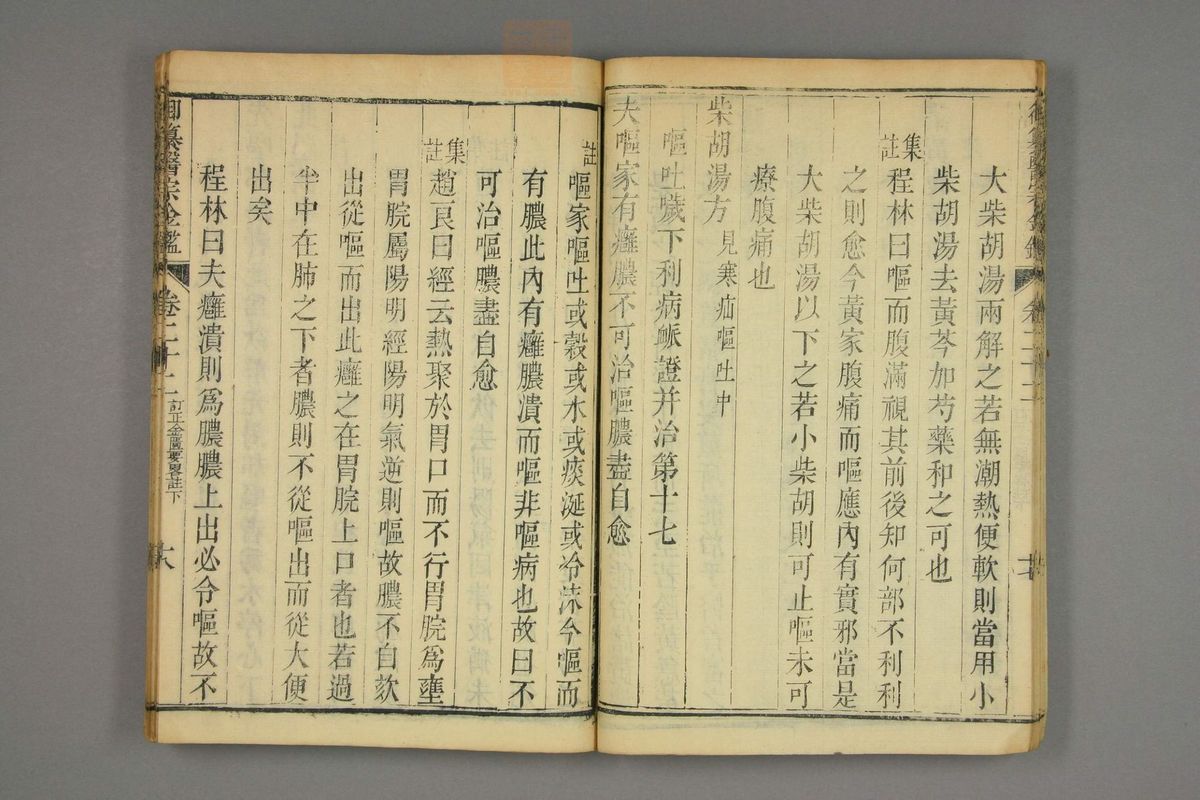 大柴胡湯兩解之若無潮熱便軟則當用小
柴胡湯去黃芩加芍藥和之可也
集註
程林曰嘔而腹滿視其前後知何部不利利
之則愈今黃家腹痛而嘔應內有實邪當是
大柴胡湯以下之若小柴胡則可止嘔未可
療腹痛也
柴胡湯方 見寒疝嘔吐中
嘔吐噦下利病脈證并治第十七
夫嘔家有癰膿不可治嘔膿盡自愈
註
嘔家嘔吐或穀或水或痰涎或冷沫今嘔而
有膿此內有癰膿潰而嘔非嘔病也故曰不
可治嘔膿盡自愈
集註
趙良曰經云熱聚於胃口而不行胃脘為壅
胃脘屬陽明經陽明氣逆則嘔故膿不自欬
出從嘔而出此癰之在胃脘上口者也若過
半中在肺之下者膿則不從嘔出而從大便
出矣
程林曰夫癰潰則為膿膿上出必令嘔故不
御纂醫宗金鑑
卷二十二
訂正金匱要畧註下